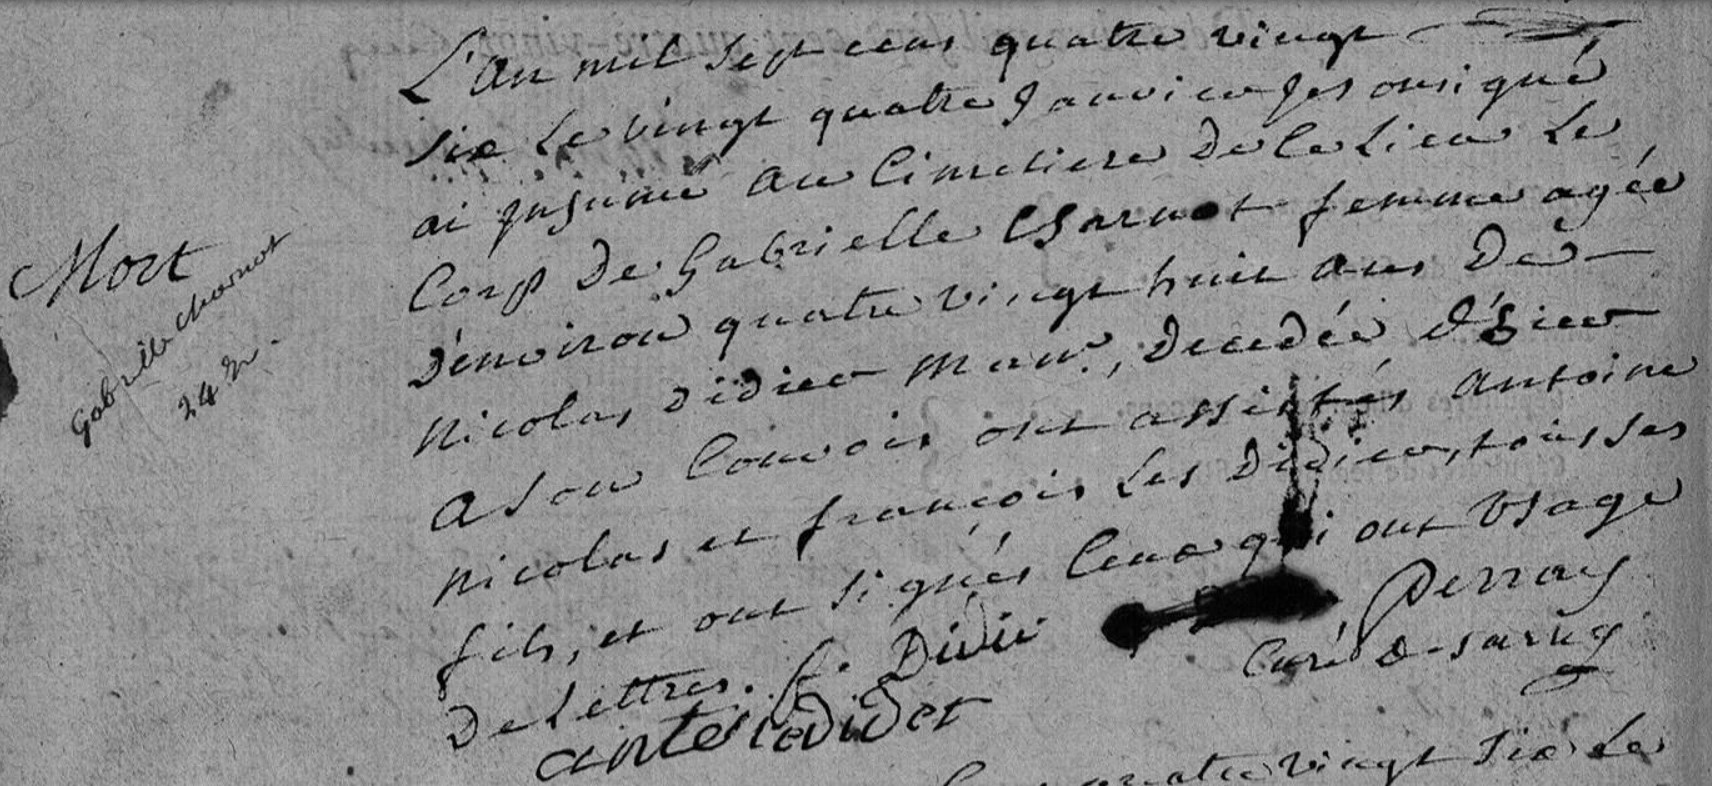 L'an mil sept cens quatre vingt
six le vingt quatre Janvier Je sousigné
ai Inhumé au Cimetiere de ce Lieu le
Corps de Gabrielle Charnot femme agée
d'environ quatre vingt huit ans de
Nicolas Didier man.r, decedée d'hier
a son Convois ont assistés Antoine
Nicolas et françois les Didier, tous ses
fils, et ont signés Ceux qui ont Usage
De Lettres. f. Didie
Perrou
Curé d. sarrey
antoine Didier
Mort
Gabrielle charnot
24 J.er
quatre vingt six Le